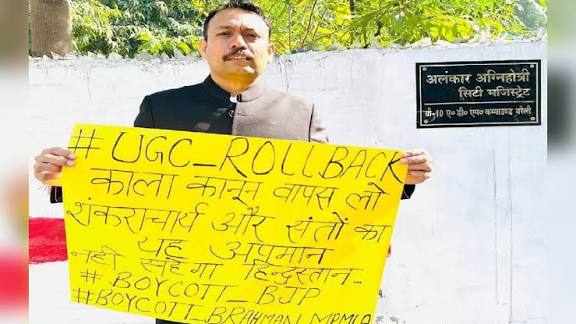 अलंकार अग्निहोत्री
सिटी मजिस्ट्रेट
बी-10 ए० डी० एम० कम्पाउण्ड बरेली
# UGC_ROLLBACK
काला कानून वापस लो
शंकराचार्य और संतों का
यह अपमान
नहीं सहेगा हिन्दुस्तान...
# BOYCOTT_BJP
# BOYCOTT_BRAHMAN_MPMLA